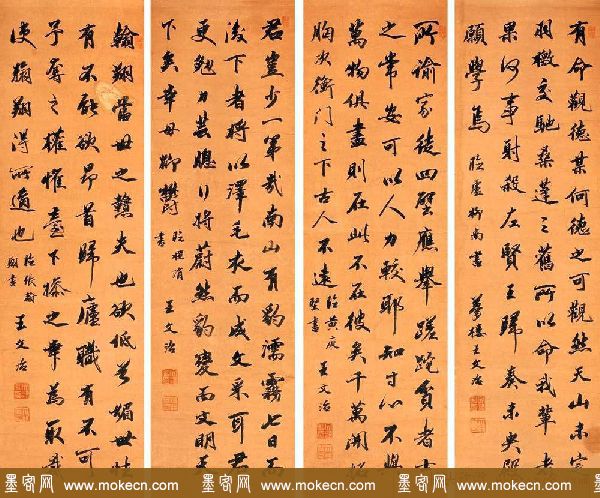 有命觀德某何德之可觀然天山未定
羽檄交馳桑蓬之舊所以命我輩者
果何事射殺左賢王歸奏未央殿
願學焉 臨盧柳南書 夢樓王文治
所諭家徒四壁應舉蹉跎貧者士
之常安可以人力較耶知寸心不與
萬物俱盡則在此不在彼矣千萬開
胸次衡門之下古人不遠 臨黃庭
堅書 王文治
君豈少一第哉南山有豹濡霧七日不
下者將以澤毛衣而成文采耳君
更勉力芸聰行將蔚然豹變而文明天
下矣幸毋抑鬱 臨程
書 王文治
翰翔當世之夫也欲低首媚世
有不能欲昂首歸廬職有不可
予辱之權惟臺下操之幸為取裁
使翰翔得所適也 臨張翰
翔書 王文治
墨客网 www.mokecn.com 墨客网 www.mokecn.com 墨客网 www.mokecn.com